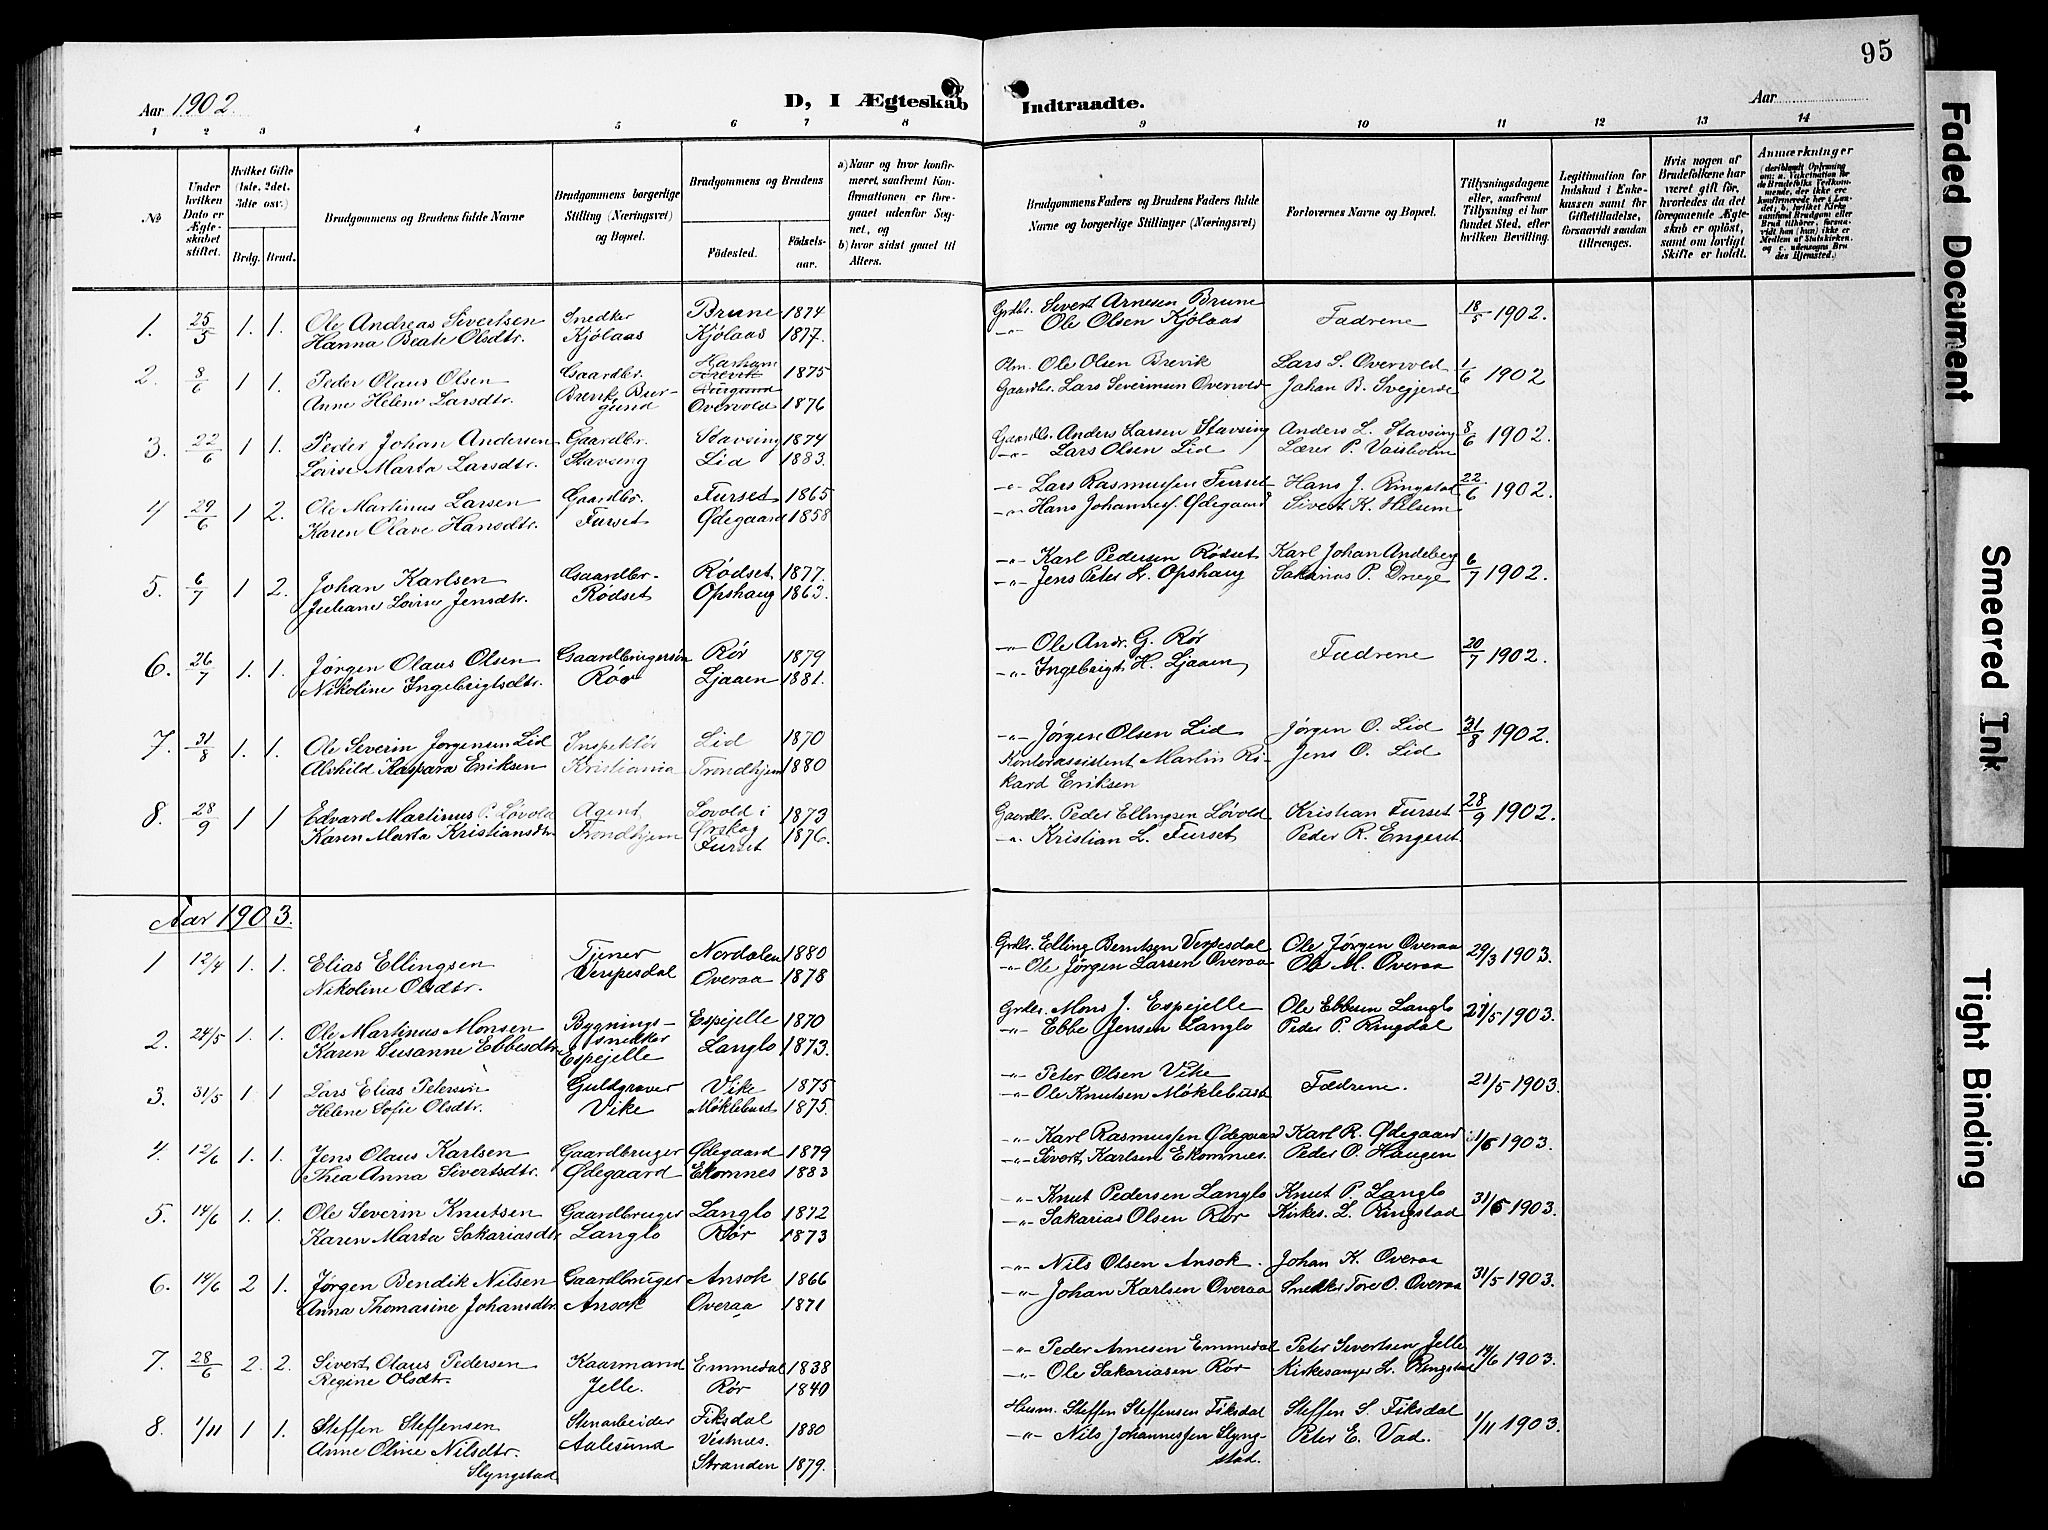 95
Aar 1902.
D, I Ægteskab Indtraadte.
Aar
1 2 3 4 5 6 7 8 9 10 11 12 13 14
No
Under hvilken Dato er Ægteskabet stiftet.
Hvilket Gifte (1ste, 2det, 3die osv.)
Brdg. Brud.
Brudgommens og Brudens fulde Navne
Brudgommens borgerlige Stilling (Næringsvei) og Bopæl.
Brudgommens og Brudens
Fødested.
Fødselsaar.
a) Naar og hvor konfirmeret, saafremt Konfirmationen er foregaaet udenfor Sognet, og
b) hvor sidst gaaet til Alters.
Brudgommens Faders og Brudens Faders fulde Navne og borgerlige Stillinger (Næringsvei)
Forlovernes Navne og Bopæl.
Tillysningsdagene eller, saafremt Tillysning ei har fundet Sted, efter hvilken Bevilling.
Legitimation for Indskud i Enkekassen samt for Giftetilladelse, forsaavidt saadan tiltrænges.
Hvis nogen af Brudefolkene har været gift før, hvorledes da det foregaaende Ægteskab er opløst, samt om lovligt Skifte er holdt.
Anmærkninger
1. 25/5 1. 1. Ole Andreas Sivertsen Snedker Brune 1874 Grdbr. Sivert Arnesen Brune Fædrene 18/5 1902.
Hanna Beate Olsdtr. Kjølaas Kjølaas 1877. -"- Ole Olsen Kjølaas
2. 8/6 1 1. Peder Olaus Olsen Gaardbr. Harham 1875 Ole Olsen Brevik Lars S. Overvold 1/6 1902
Anne Helene Larsdtr. Brevik, Overvold 1876 Gaardbr. Lars Severinsen Overvold Johan B. Svejgjerde
3. 22/6 1 1. Peder Johan Andersen Gaardbr. Stavsing 1874 Gaardbr. Anders Larsen Stavsing Anders L. Stavsing 8/6 1902.
Lovise Marta Larsdtr. Stavsing Lid 1883. -"- Lars Olsen Lid Lærer P. Vaisholm
4 29/6 1 2. Ole Martinus Larsen Gaardbr. Furset 1865 -"- Lars Rasmussen Furset Hans J. Ringstad 22/6 1902.
Karen Olave Hansdtr. Furset Ødegaard 1858 -"- Hans Johannes. Ødegaard Sivert K. Hilsem
5. 6/7 1 2. Johan Karlsen Gaardbr. Rødset 1877. -"- Karl Pedersen Rødset Karl Johan Andeberg 6/7 1902.
Juliane Lovise Jensdtr. Rødset Opshaug 1863. -"- Jens Peter L. Opshaug Sakarias P. Drege
6. 26/7 1. 1. Jørgen Olaus Olsen Gaardbrugersøn Rør 1879 -"- Ole Andr. G. Rør Fædrene 20/7 1902.
Nikoline Ingebrigtsdtr. Rør Ljaaen 1881. -"- Ingebrigt H. Ljaaen
7. 31/8 1. 1. Ole Severin Jørgensen Lid Inspektør Lid 1870 -"- Jørgen Olsen Lid Jørgen O. Lid 31/8 1902.
Alshild Kaspara Eriksen Kristiania Trondhjem 1880 Kontorassistent Martin Rikard Eriksen Jens O. Lid
8. 28/9 1 1 Edvard Martinus P. Løvold Agent Lovold i Ørskog 1873 Gaardbr. Peder Ellingsen Løvold Kristian Furset 28/9 1902.
Karen Marta Kristiansdtr Trondhjem Furset 1876. -"- Kristian L. Furset Peder R. Engeset
Aar 1903.
1 12/4 1. 1. Elias Ellingsen Tjener Nordalen 1880 Grdbr. Elling Berntsen Verpesdal Ole Jørgen Overaa 29/3 1903.
Nikoline Olsdtr. Verpesdal Overaa 1878 -"- Ole Jørgen Larsen Overaa Ole M. Overaa
2. 24/5 1. 1. Ole Martinus Monsen Bygningssnedker Espejelle 1870 Grdbr. Mons J. Espejelle Ole Ebbesen Langlo /5 1903.
Karen Susanne Ebbesdtr. Espejelle Langlo 1873. -"- Ebbe Jensen Langlo Peder P. Ringdal
3. 31/5 1. 1 Lars Elias Petersen Guldgraver Vike 1875 -"- Peter Olsen Vike Fædrene. 21/5 1903.
Helene Sofie Olsdtr. Vike Møklebust 1875. -"- Ole Knutsen Møklebust
4. 12/6 1. 1. Jens Olaus Karlsen Gaardbruger Ødegaard 1879 -"- Karl Rasmussen Ødegaard Karl R. Ødegaard 1903.
Thea Anna Sivertsdtr. Ødegaard Ekornnes 1883 -"- Sivert Karlsen Ekornnes. Peder O. Haugen
5. 14/6 1. 1. Ole Severin Knutsen Gaardbruger Langlo 1872 -"- Knut Pedersen Langlo Knut P. Langlo 31/5 1903.
Karen Marta Sakariasdtr. Langlo Rør 1873 -"- Sakarias Olsen Rør Kirkes. L. Ringstad
6. 14/6 2 1. Jørgen Bendik Nilsen Gaardbruger Ansok 1866 -"- Nils Olsen Ansok. Johan K. Overaa 31/5 1903.
Anna Thomasine Johansdtr. Ansok Overaa 1871 -"- Johan Karlsen Overaa Snedker Tore O. Overaa
7. 28/6 2. 2. Sivert Olaus Pedersen Kaarmand Emmedal 1838 -"- Peder Arnesen Emmedal Peter Sivertsen Jelle 14/6 1903.
Regine Olsdtr. Jelle. Rør 1840 -"- Ole Sakariasen Rør Kirkesanger L. Ringstad
8. 1/11 1 1. Steffen Steffensen Stenarbeider Fiksdal Vestnes. 1880 Husm. Steffen Steffensen Fiksdal Steffen S. Fiksdal 1/11 1903.
Anne Oline Nilsdtr. Slyngstad Aalesund Stranden 1879. -"- Nils Johannessen Slyngstad. Peter E. Vad.
Faded Document
Smeared Ink
Tight Binding